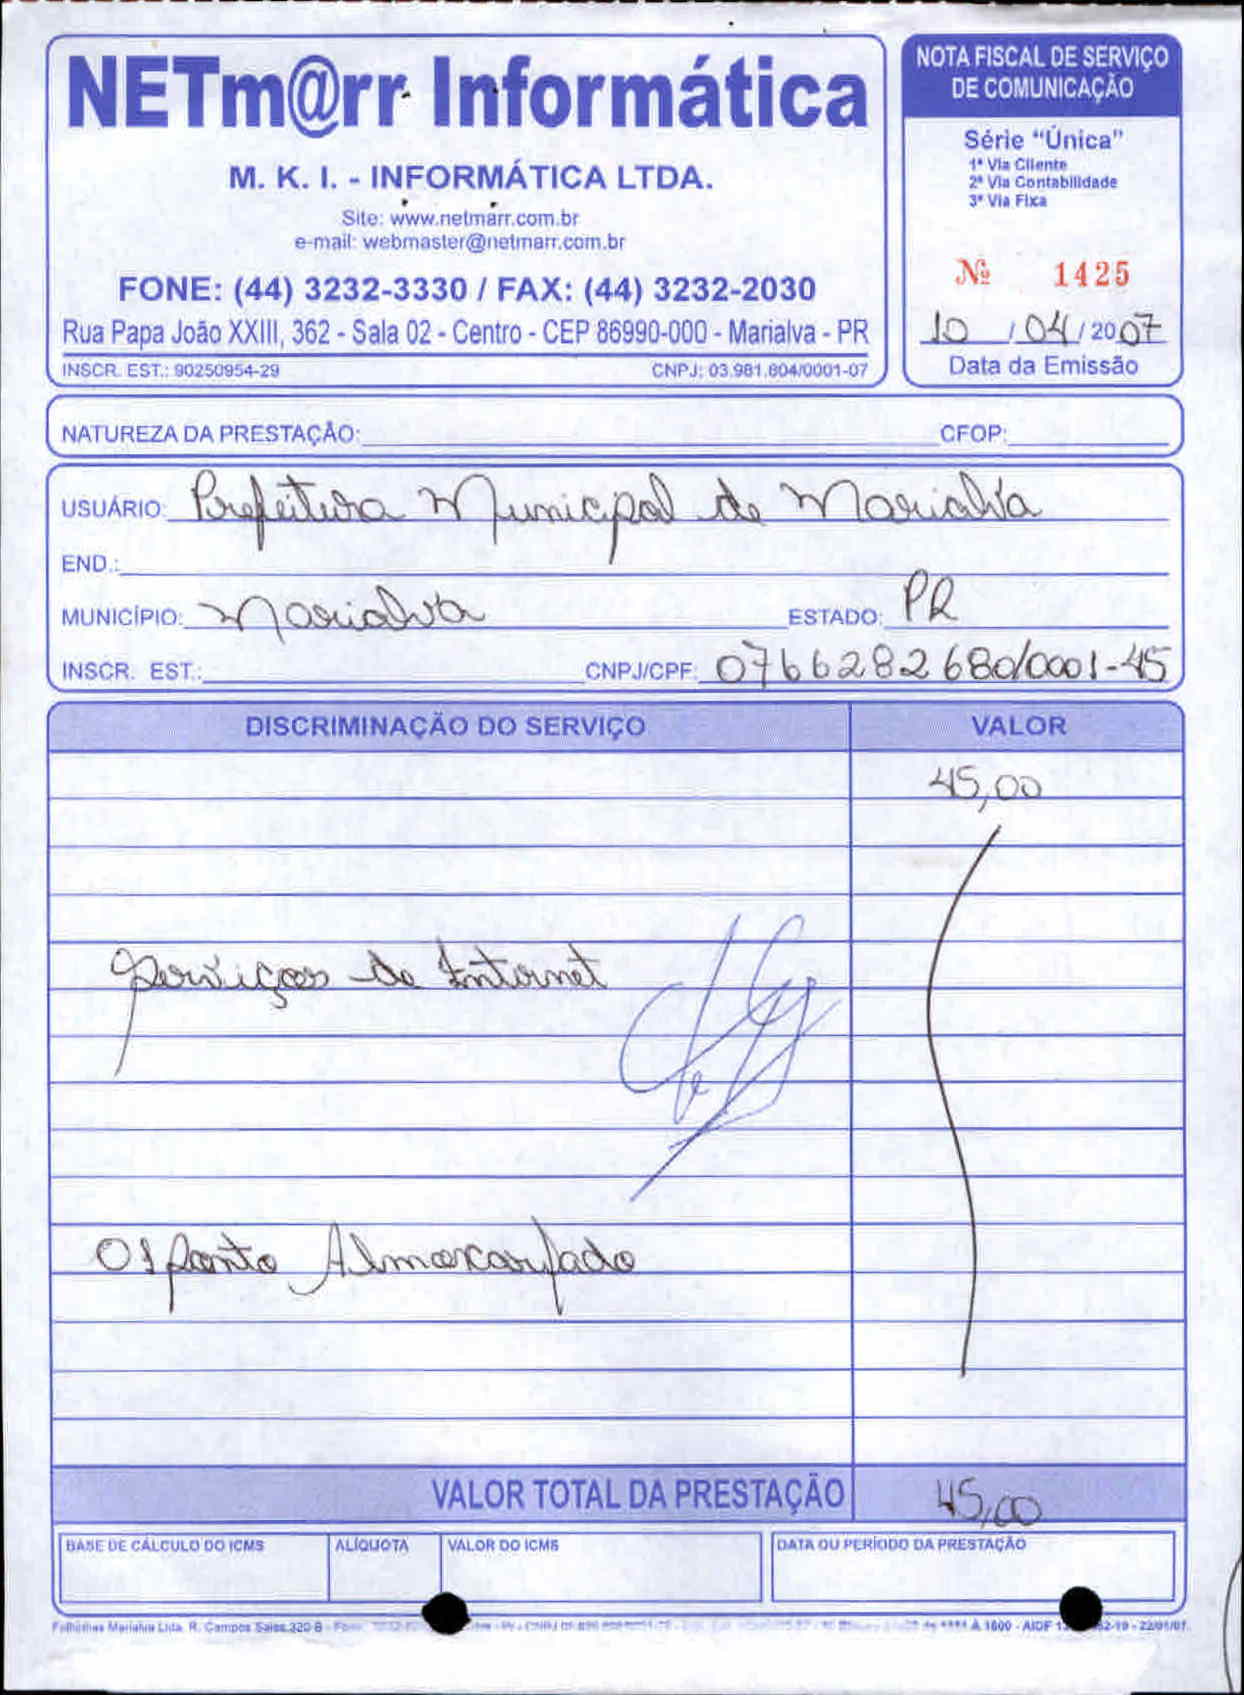 NETm@rr Informática
M. K. I. - INFORMÁTICA LTDA.
Site: www.netmarr.com.br
e-mail: webmaster@netmarr.com.br
FONE: (44) 3232-3330 / FAX: (44) 3232-2030
Rua Papa João XXIII, 362 - Sala 02 - Centro - CEP 86990-000 - Marialva - PR
INSCR. EST.: 90250954-29 CNPJ: 03.981.804/0001-07
NOTA FISCAL DE SERVIÇO
DE COMUNICAÇÃO
Série “Única”
1ª Via Cliente
2ª Via Contabilidade
3ª Via Fixa
Nº 1425
10 / 04 / 2007
Data da Emissão
NATUREZA DA PRESTAÇÃO: CFOP:
USUÁRIO: Prefeitura Municipal de Marialva
END.:
MUNICÍPIO: Marialva ESTADO: PR
INSCR. EST.: CNPJ/CPF: 0766282680/0001-45
DISCRIMINAÇÃO DO SERVIÇO VALOR
45,00
Serviços de Internet
01 ponto Almoxarifado
VALOR TOTAL DA PRESTAÇÃO 45,00
BASE DE CÁLCULO DO ICMS ALÍQUOTA VALOR DO ICMS DATA OU PERÍODO DA PRESTAÇÃO
Marialva Ltda. R. Campos Sales, 320 B À 1800 - AIDF